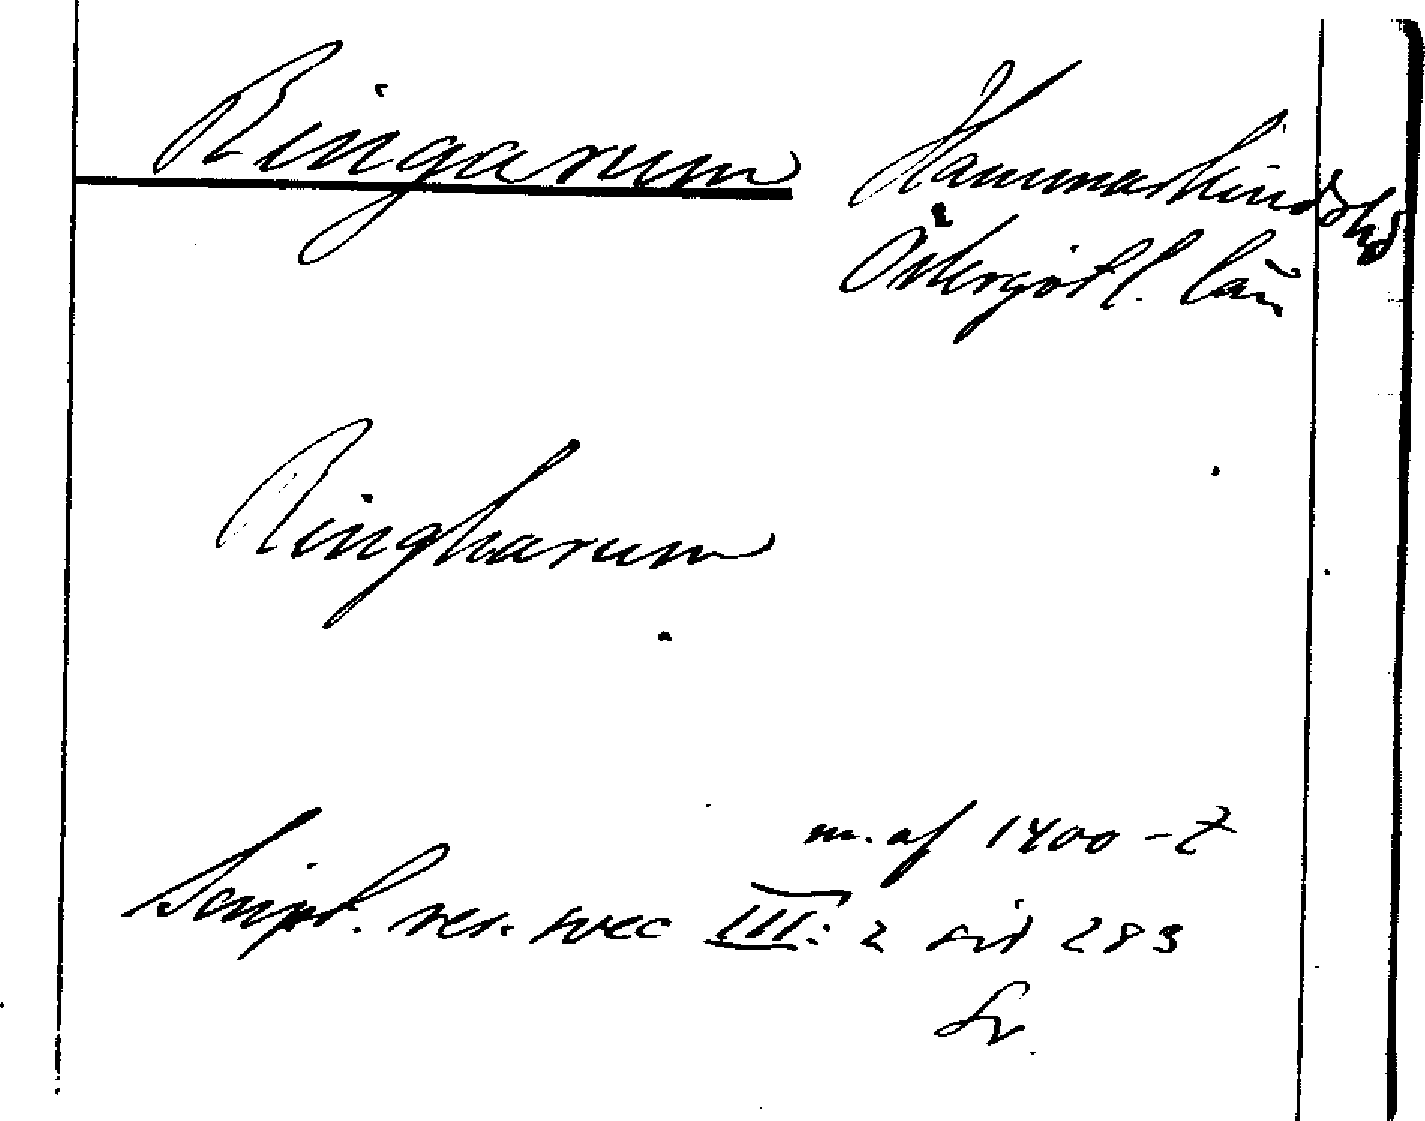 Ringarum Hammarkinds hd
Östergötl. län
Ringharum
m. af 1400-t
Script. rer. svec III: 2 sid 283
Sv.